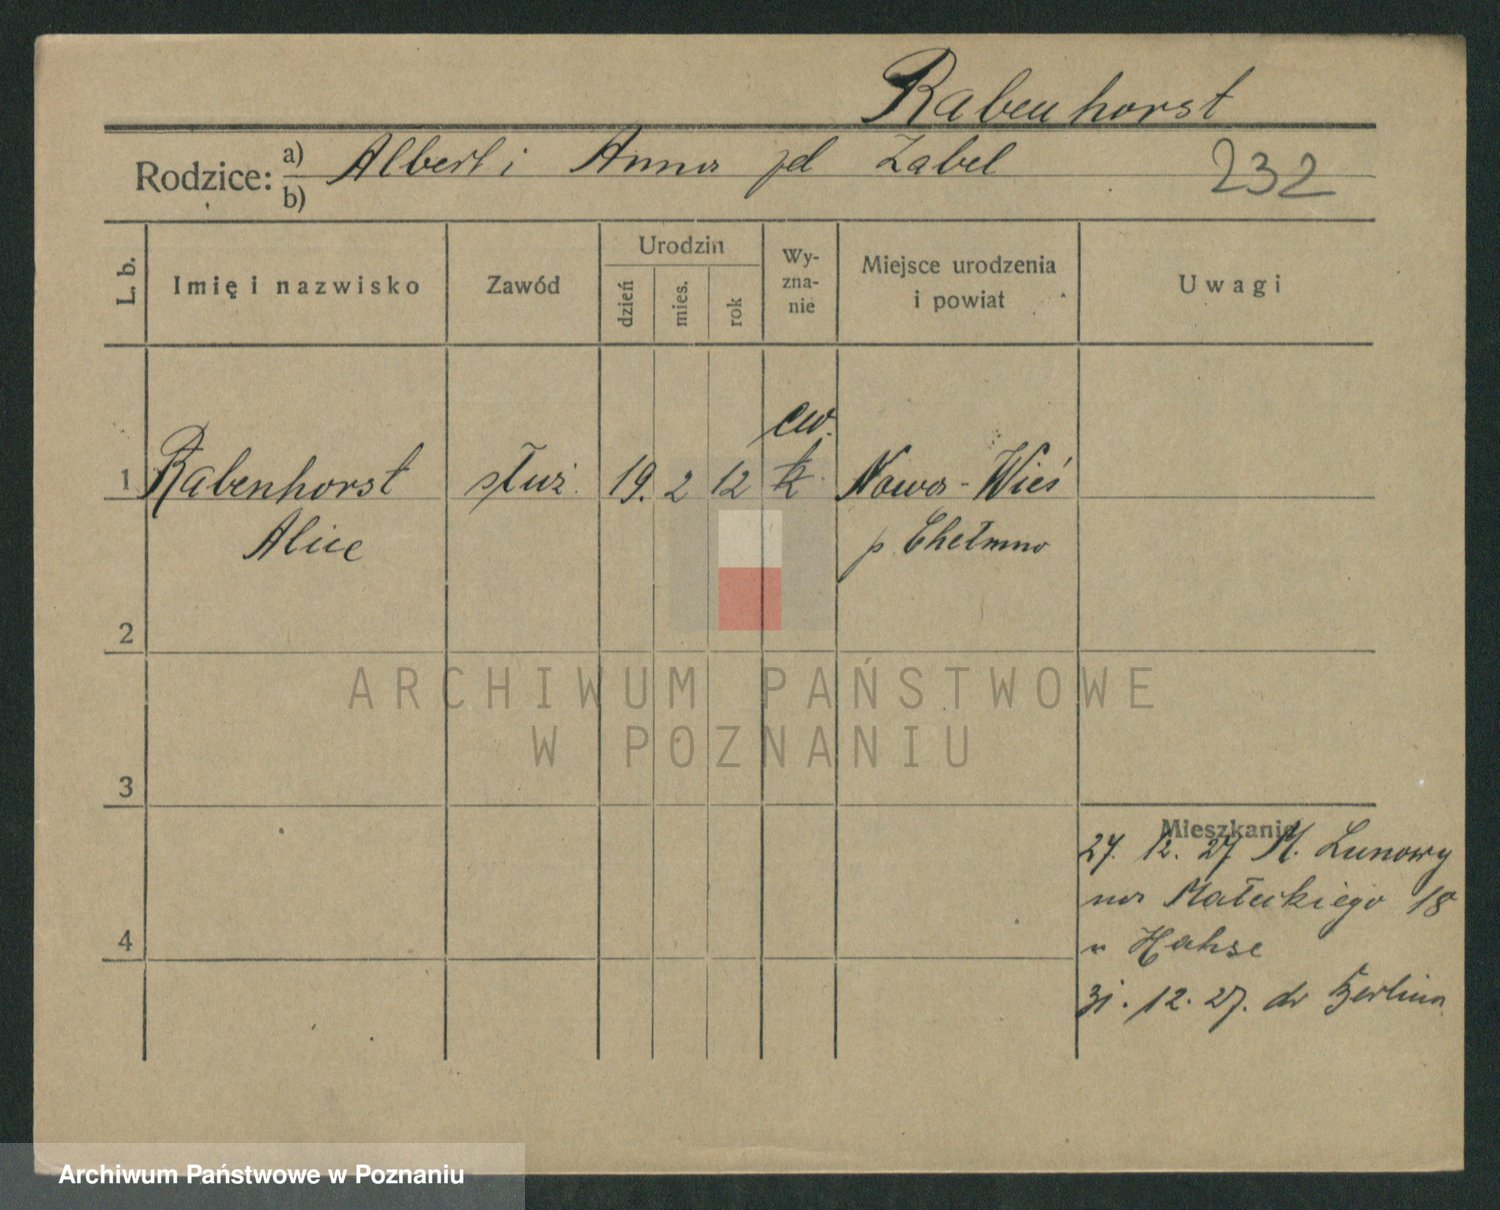 Rabenhorst
Rodzice: a) Albert i Anna zd Zabel
b)
232
L. b. Imię i nazwisko Zawód Urodzin dzień mies. rok Wyznanie Miejsce urodzenia i powiat Uwagi
ew.
1 Rabenhorst służ. 19. 2 12 k Nowa-Wieś
Alice p Chełmno
2
3
Mieszkanie
27. 12. 27 M.
na Małeckiego 18
u Hahse
4
31. 12. 27. do Berlina
ARCHIWUM PAŃSTWOWE
W POZNANIU
Archiwum Państwowe w Poznaniu